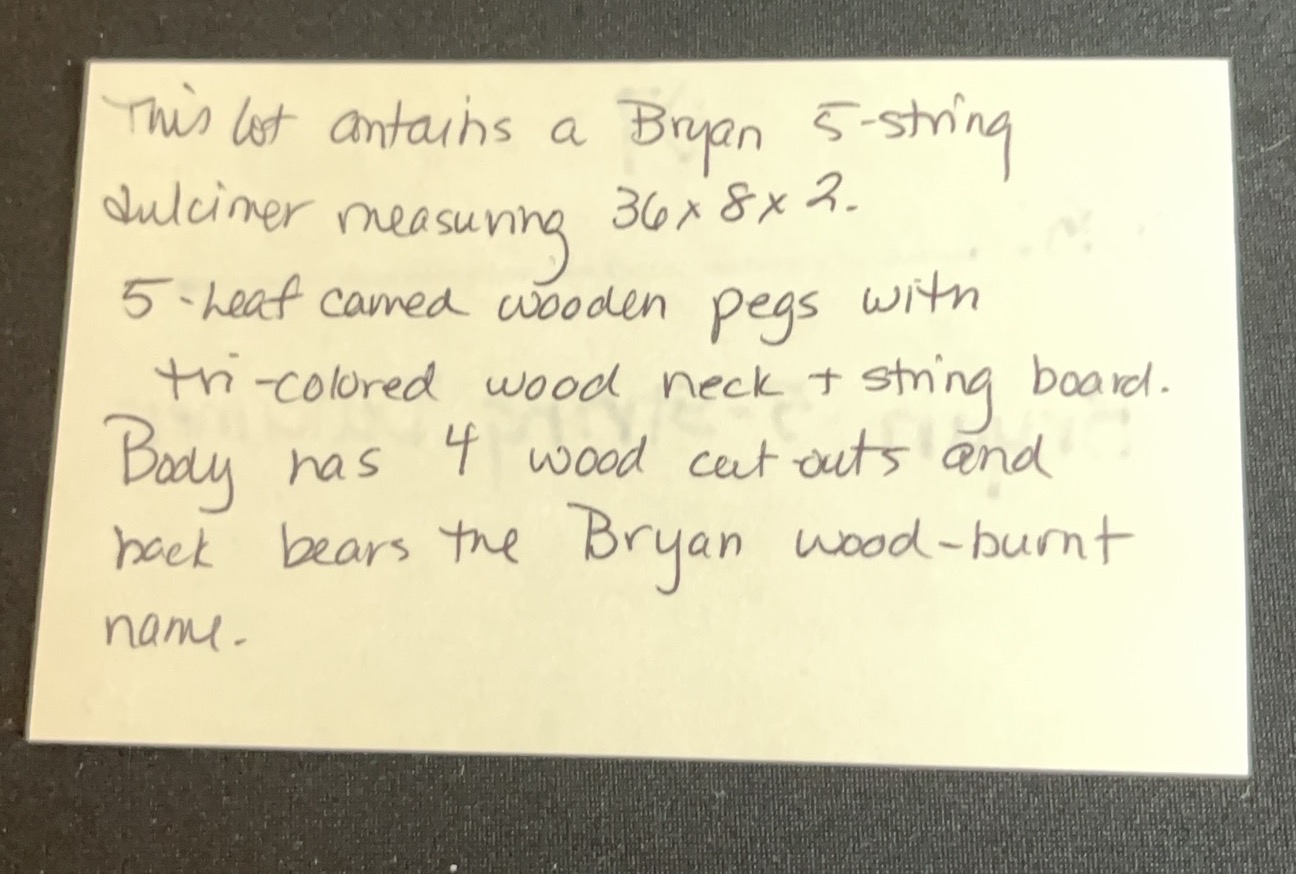 This lot contains a Bryan 5-string
dulcimer measuring 36 x 8 x 2.
5-leaf carved wooden pegs with
tri-colored wood neck + string board.
Body has 4 wood cut outs and
back bears the Bryan wood-burnt
name.